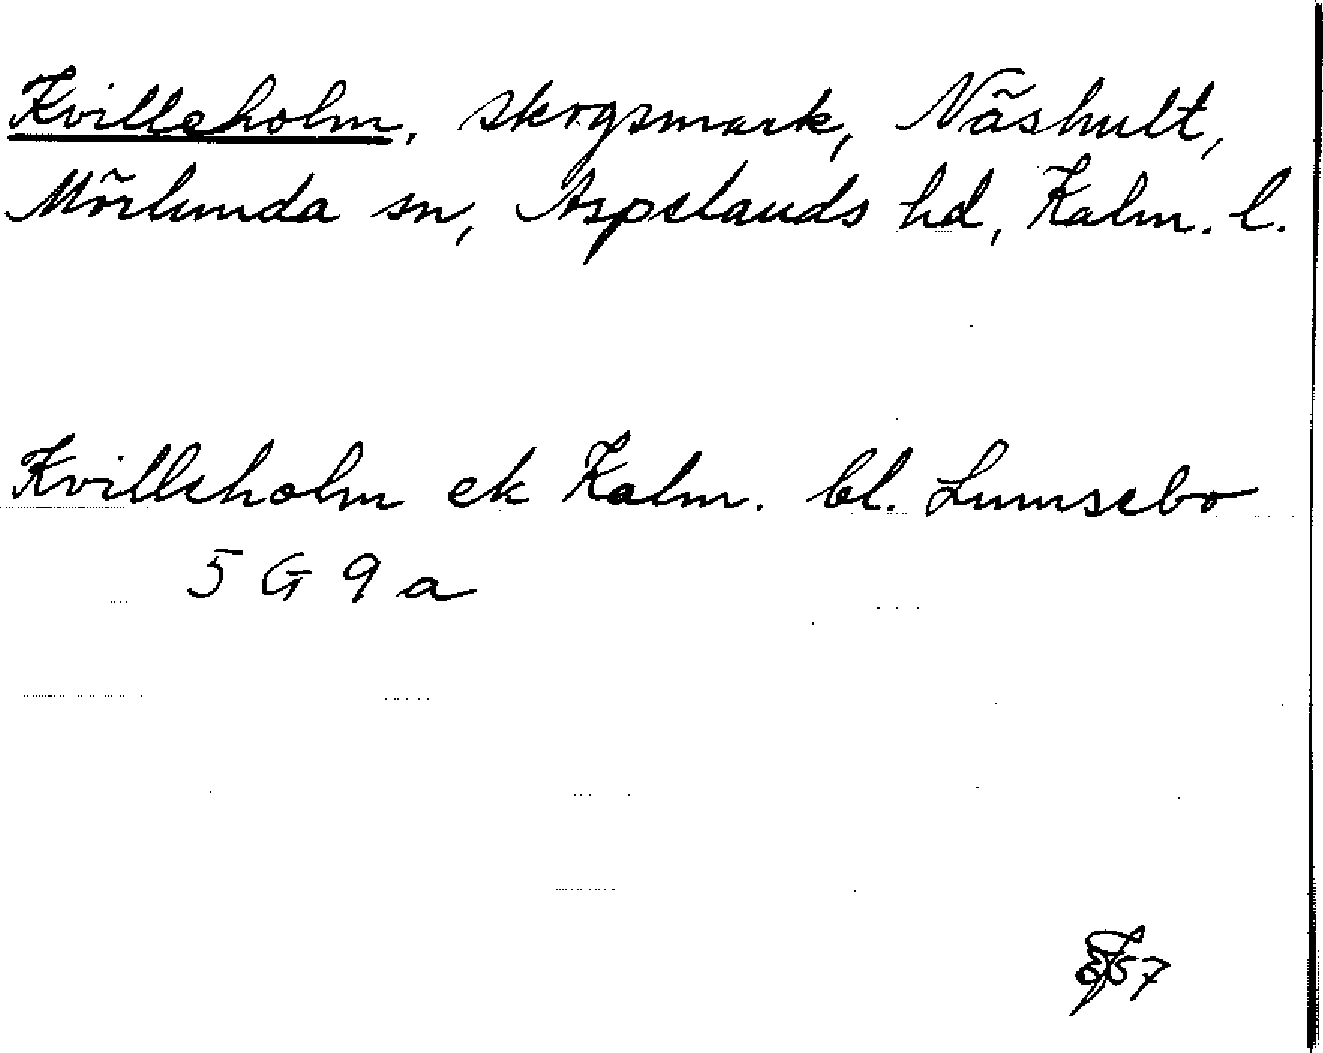 Kvilleholm, skogsmark, Näshult,
Mörlunda sn, Aspelands hd, Kalm. l.
Kvilleholm ek Kalm. bl. Lunnsebo
5 G 9 a